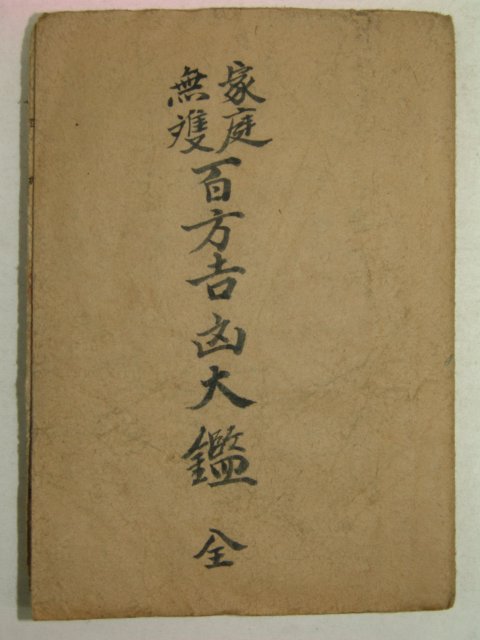 家庭
無雙
百方吉凶大鑑 全